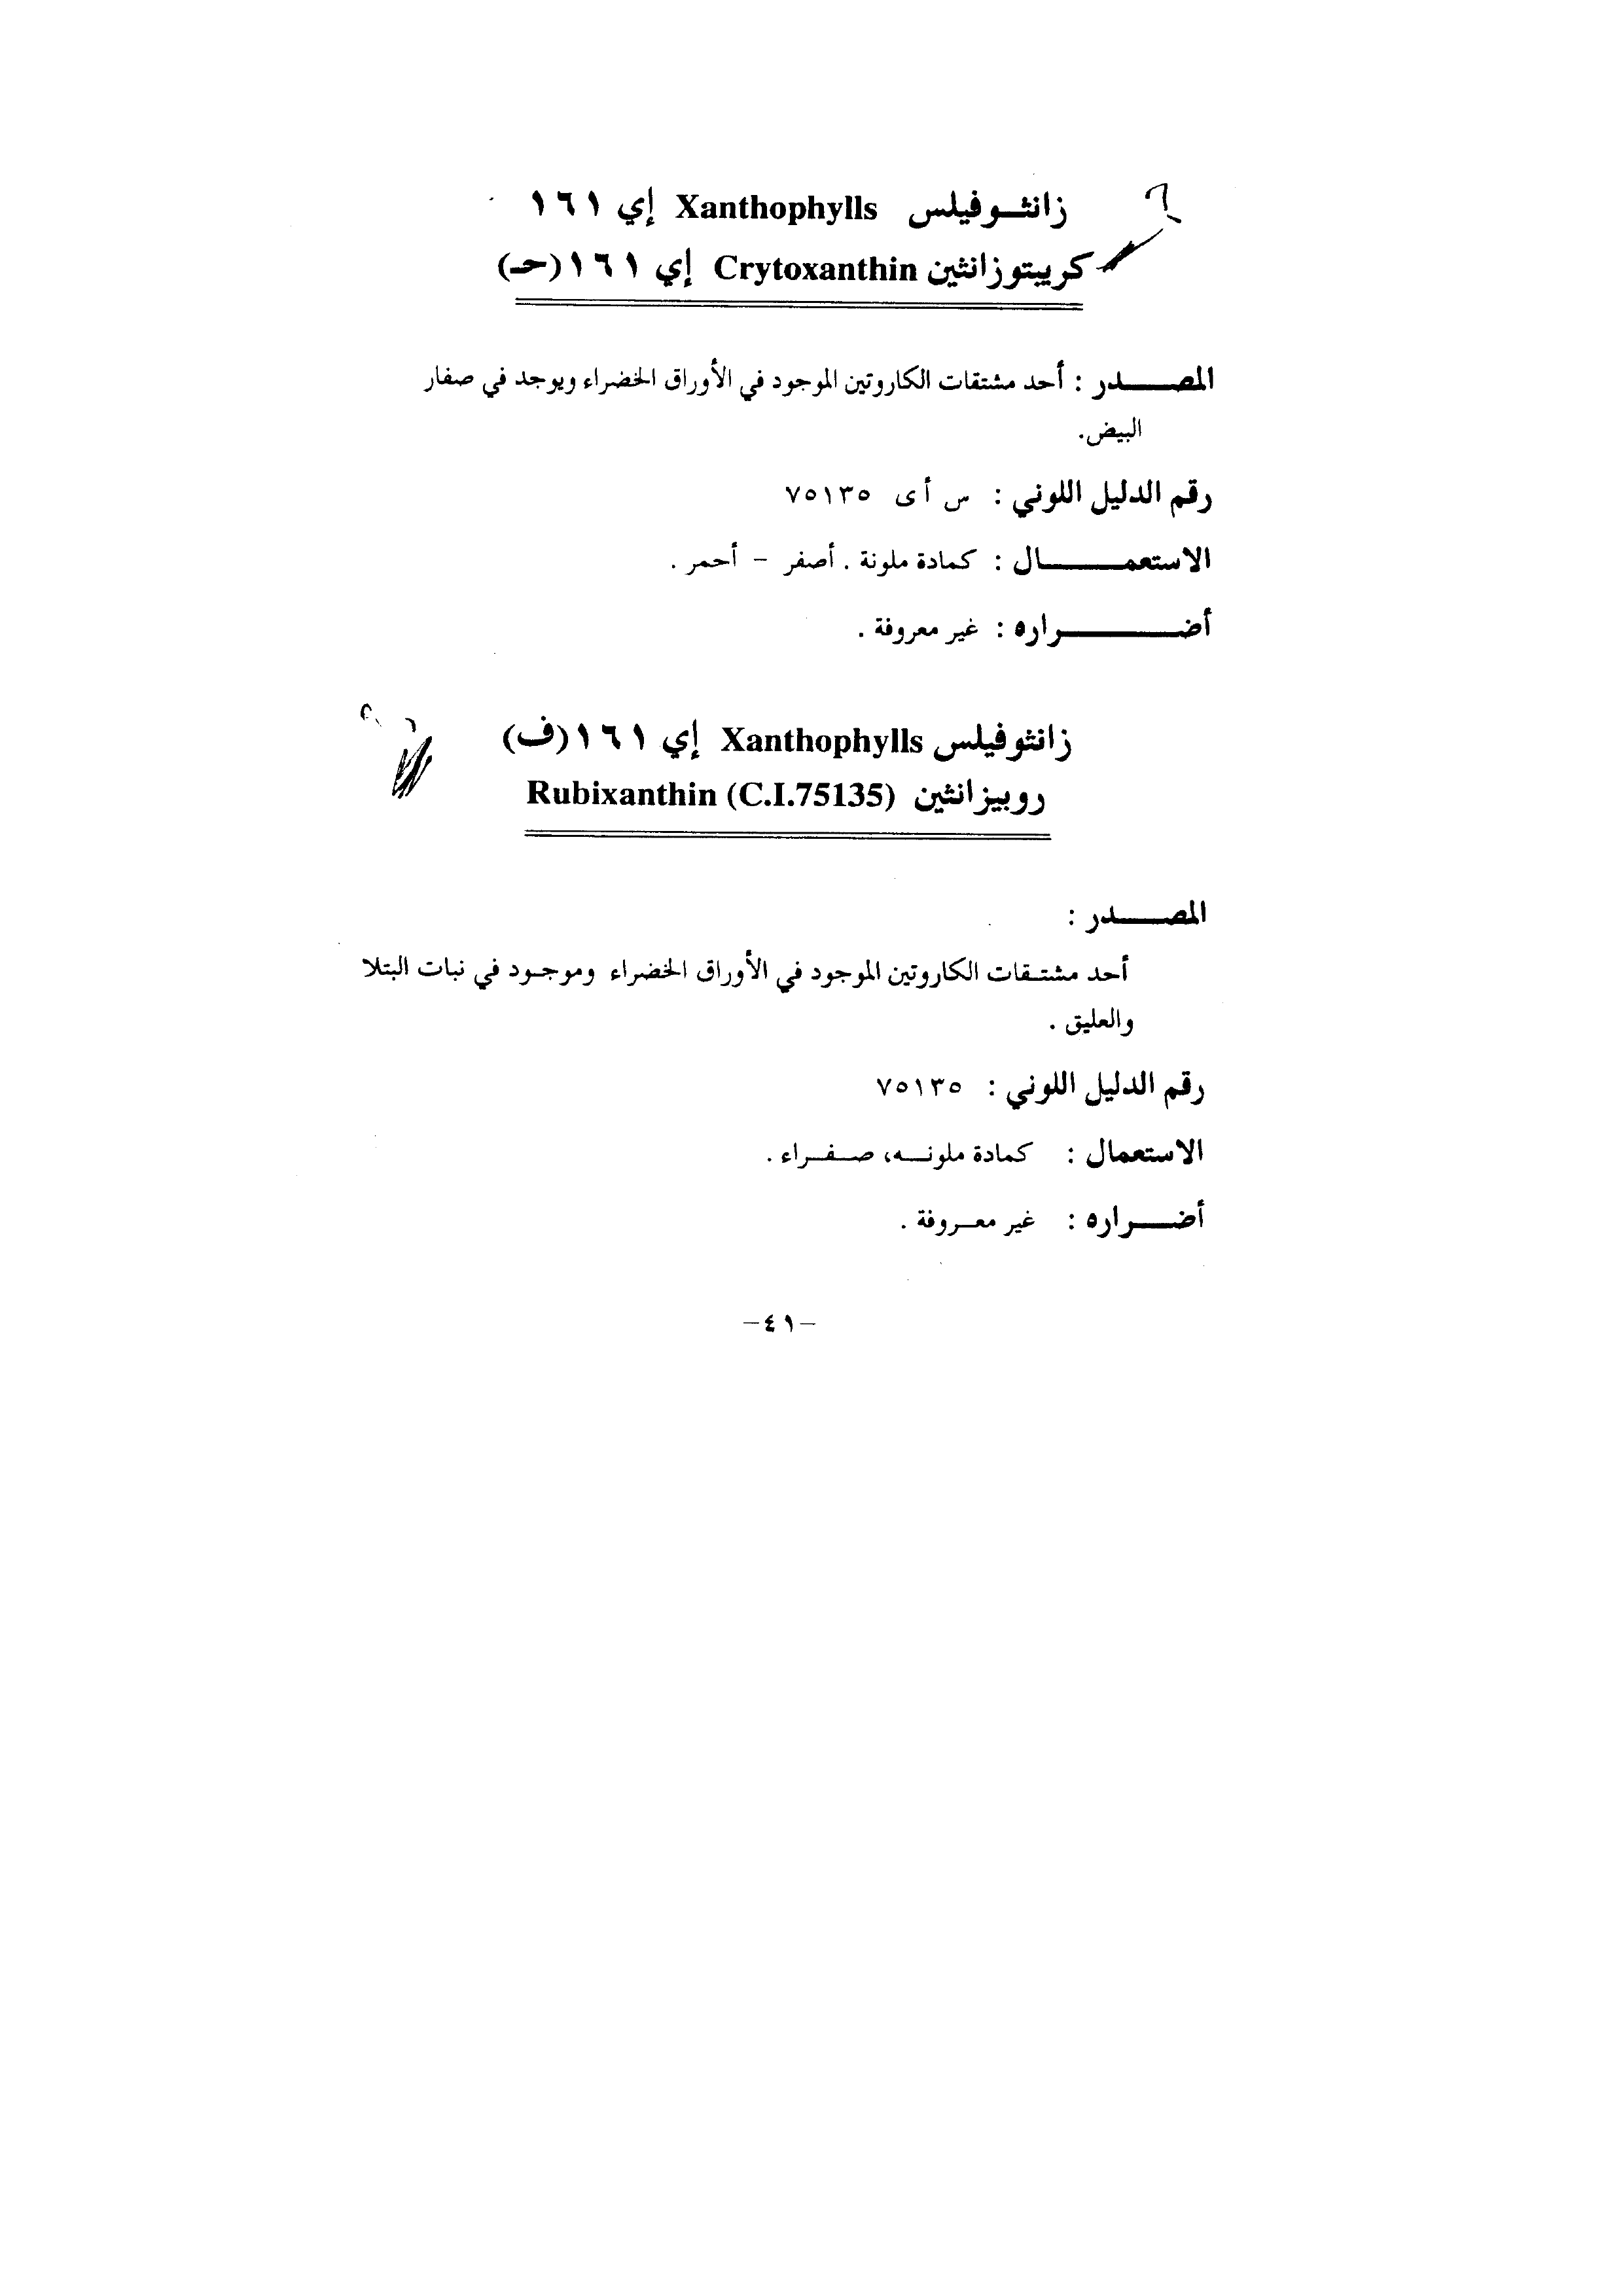 زانثوفيلس Xanthophylls إي ١٦١
كريبتوزانثين Crytoxanthin إي ١٦١(حـ)
المصدر : أحد مشتقات الكاروتين الموجود في الأوراق الخضراء ويوجد في صفار
البيض.
رقم الدليل اللوني : س أى ٧٥١٣٥
الاستعمال : كمادة ملونة . أصفر - أحمر .
أضراره : غير معروفة .
زانثوفيلس Xanthophylls إي ١٦١(ف)
روبيزانثين Rubixanthin (C.I.75135)
المصدر :
أحد مشتقات الكاروتين الموجود في الأوراق الخضراء وموجود في نبات البتلا
والعليق .
رقم الدليل اللوني : ٧٥١٣٥
الاستعمال : كمادة ملونه، صفراء .
أضراره : غير معروفة .
-٤١-